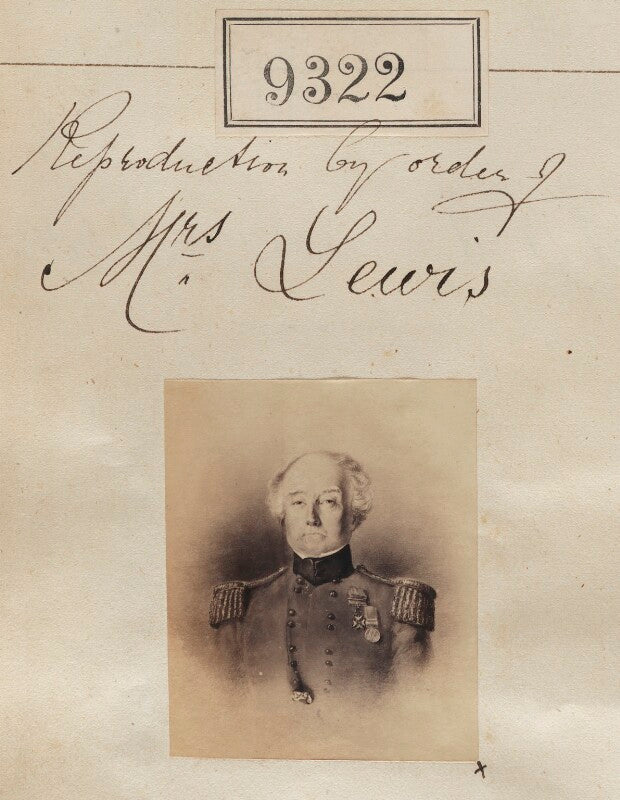 9322
Reproduction by order of
Mrs Lewis
x